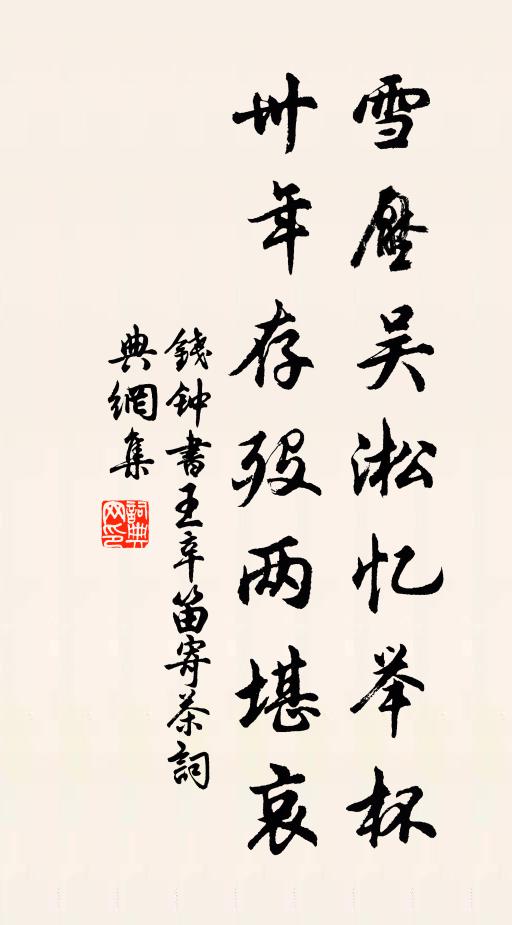 雪壓吴淞忆举杯
卅年存殁两堪哀
錢钟書王辛笛寄茶詞
典網集
詞典网印